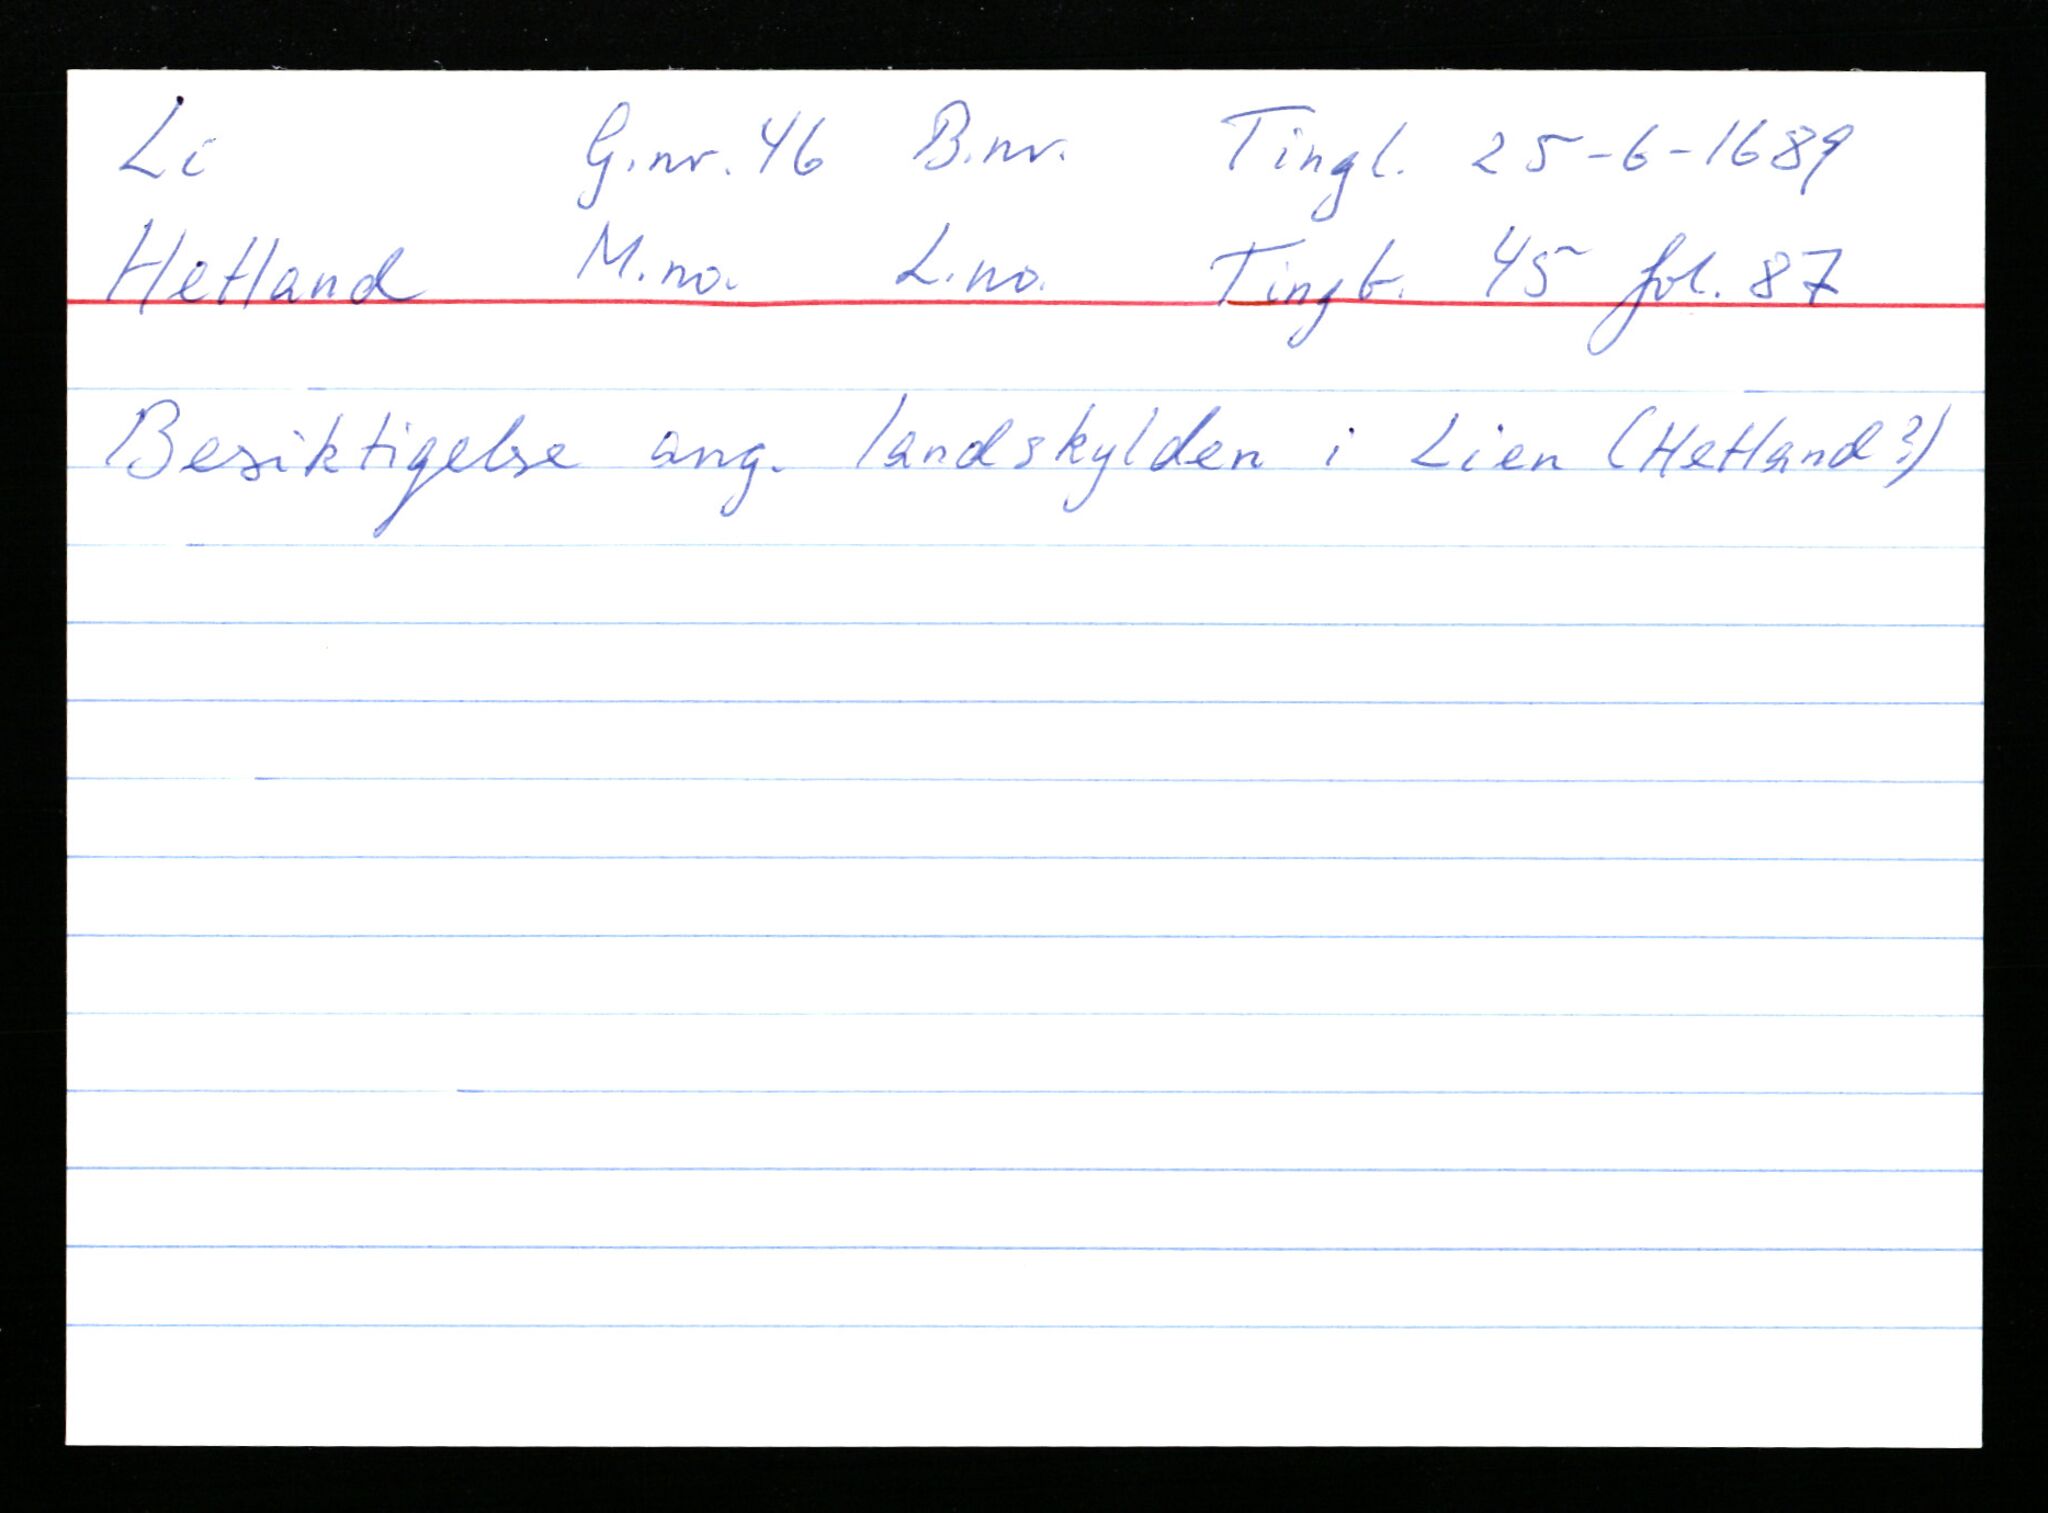 Li G.nr. 46 B.nr. Tingl. 25-6-1689
Hetland M.no. L.no. Tingb. 45 fol. 87
Besiktigelse ang. landskylden i Lien (Hetland?)